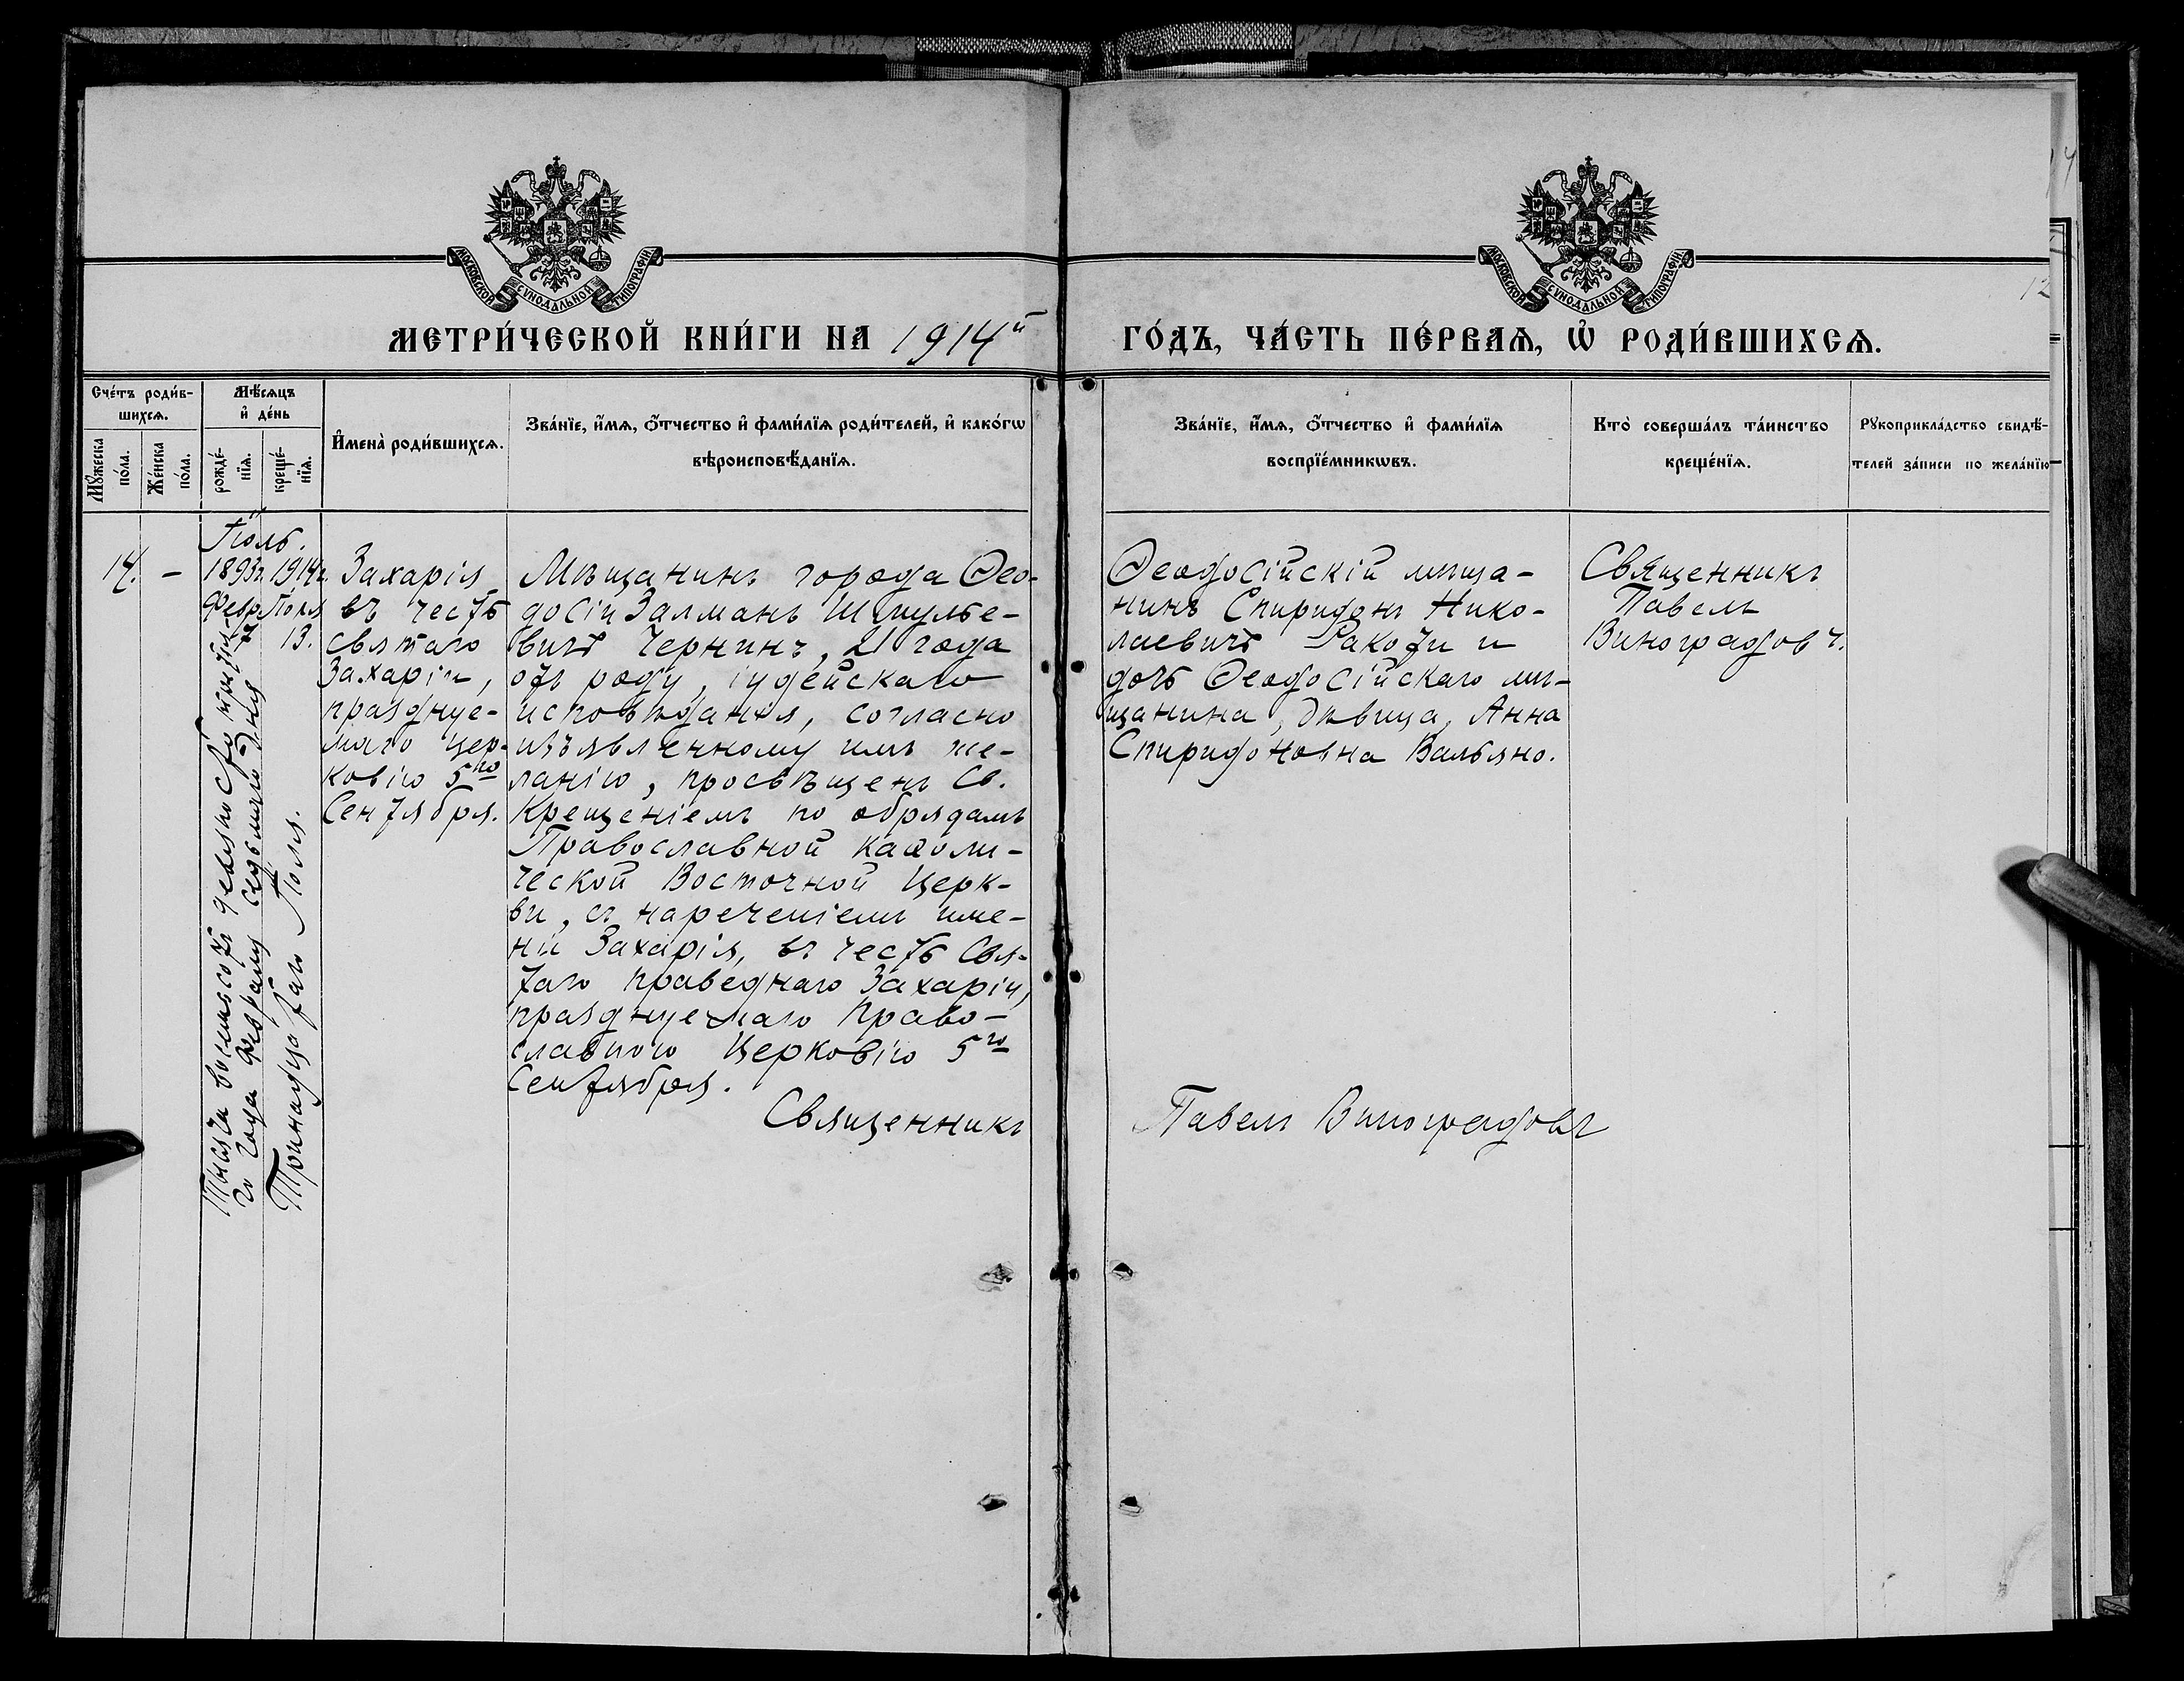 МОСКОВСКОЙ СѴНОДАЛЬНОЙ ТИПОГРАФІИ.
МОСКОВСКОЙ СѴНОДАЛЬНОЙ ТИПОГРАФІИ.
МЕТРИ́ЧЕСКОЙ КНИ́ГИ НА 1914й
ГО́ДЪ, ЧА́СТЬ ПЕ́РВАѦ, Ѽ РОДИ́ВШИХСѦ.
Сче́тъ роди́в-
шихсѧ.
Мꙋ́жеска
по́ла.
Же́нска
по́ла.
Мѣ́сѧцъ
и҆ де́нь
рожде́-
нїѧ.
креще́-
нїѧ.
И҆мена̀ роди́вшихсѧ.
Зва́нїе, и҆́мѧ, ѻ҆́тчество и҆ фами́лїѧ роди́телей, и҆ како́гѡ
вѣроисповѣ́данїѧ.
Зва́нїе, и҆́мѧ, ѻ҆́тчество и҆ фами́лїѧ
воспрїе́мникѡвъ.
Кто̀ соверша́лъ та́инство
креще́нїѧ.
Рꙋкоприкла́дство свидѣ́-
телей за́писи по жела́нїю
12
Іюль.
14.
–
1893г.
Февр.
7
1914г.
Іюля
13.
Тысяча восемьсотъ девяносто третья-
го года Февраля седьмого дня
Тринадцатаго Іюля.
Захарія
въ честь
святаго
Захаріи,
празднуе-
маго цер-
ковію 5го
Сентября.
Мѣщанинъ города Ѳео-
досіи Залманъ Шмулье-
вичъ Чернинъ, 21 года
отъ роду, іудейскаго
исповѣданія, согласно
изъявленному имъ же-
ланію, просвѣщенъ Св.
Крещеніемъ по обрядамъ
Православной Каѳоли-
ческой Восточной Церк-
ви, съ нареченіемъ име-
ни Захарія, въ честь Свя-
таго праведнаго Захаріи,
празднуемаго Право-
славною Церковію 5го
Сентября.
Ѳеодосійскій мѣща-
нинъ Спиридонъ Нико-
лаевичъРакоти и
дочь Ѳеодосійскаго мѣ-
щанина, дѣвица, Анна
Спиридоновна Вальяно.
Священникъ
Павелъ
Виноградовъ.
Священникъ Павелъ Виноградовъ